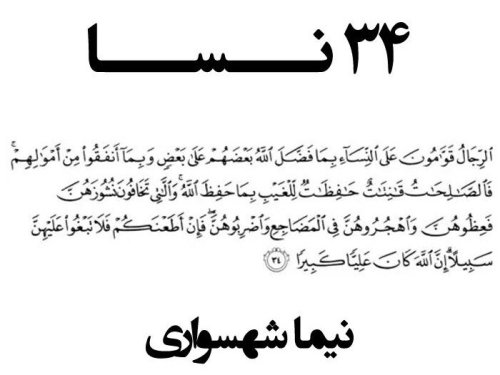 ۳۴ نسا
ٱلرِّجَالُ قَوَّٰمُونَ عَلَى ٱلنِّسَآءِ بِمَا فَضَّلَ ٱللَّهُ بَعْضَهُمْ عَلَىٰ بَعْضٍ وَبِمَآ أَنفَقُوا۟ مِنْ أَمْوَٰلِهِمْ ۚ
فَٱلصَّٰلِحَٰتُ قَٰنِتَٰتٌ حَٰفِظَٰتٌ لِّلْغَيْبِ بِمَا حَفِظَ ٱللَّهُ ۚ وَٱلَّٰتِى تَخَافُونَ نُشُوزَهُنَّ
فَعِظُوهُنَّ وَٱهْجُرُوهُنَّ فِى ٱلْمَضَاجِعِ وَٱضْرِبُوهُنَّ ۖ فَإِنْ أَطَعْنَكُمْ فَلَا تَبْغُوا۟ عَلَيْهِنَّ
سَبِيلًا ۗ إِنَّ ٱللَّهَ كَانَ عَلِيًّا كَبِيرًا ٣٤
نیما شهسواری